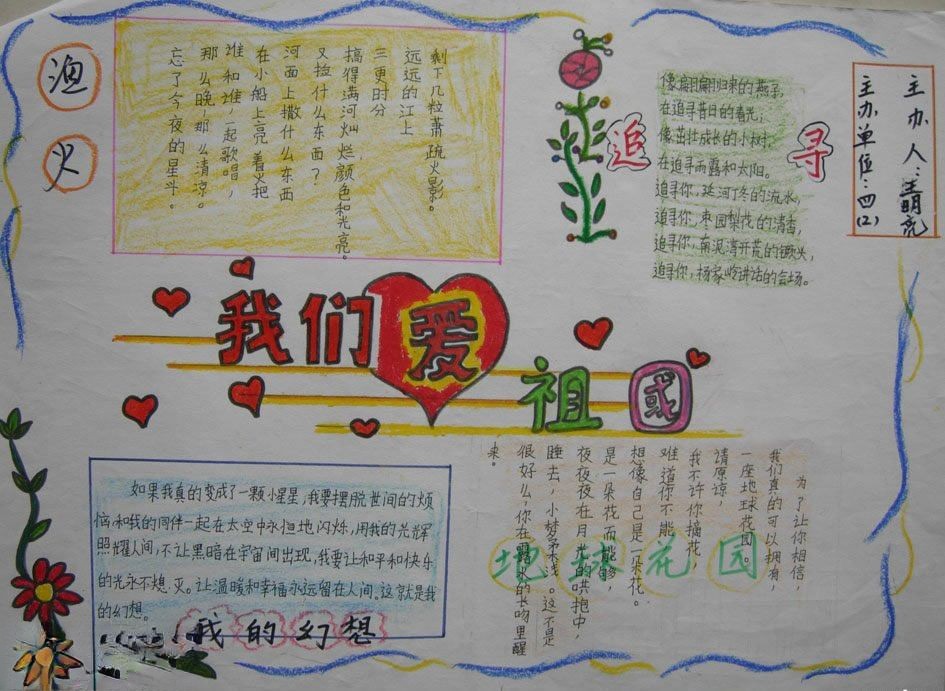 渔火
剩下几粒萧疏火影。
远远的江上
三更时分
搞得满河灿烂颜色和光亮。
又捡什么东西?
河面上撒什么东西
在小船上亮着又把
谁和谁一起歌唱,
那么晚、那么清凉。
忘了今夜的星斗.
追寻
像翩翩归来的燕子,
在追寻昔日的春光,
像茁壮成长的小树,
在追寻雨露和太阳。
追寻你,延河叮冬的流水,
追寻你,枣园梨花的清香,
追寻你,南泥湾开荒的镢头,
追寻你,杨家岭讲话的会场。
主办人:王明亮
主办单位:四(2)
我们爱祖国
如果我真的变成了一颗小星星,我要摆脱世间的烦
恼,和我的同伴一起在太空中永恒地闪烁,用我的光辉
照耀人间,不让黑暗在宇宙间出现,我要让和平和快乐
的光永不熄灭。让温暖和幸福永远留在人间。这就是我
的幻想。
我的幻想
地球花园
为了让你相信,
我们真的可以拥有,
一座地球花园。
请原谅,
我不许你摘花,
难道你不能
想像自己是一朵花。
是一朵花而能够,
夜夜夜在月光的哄抱中,
睡去,小梦柔浅。这不是
很好么,你在露水的长吻里醒
来。